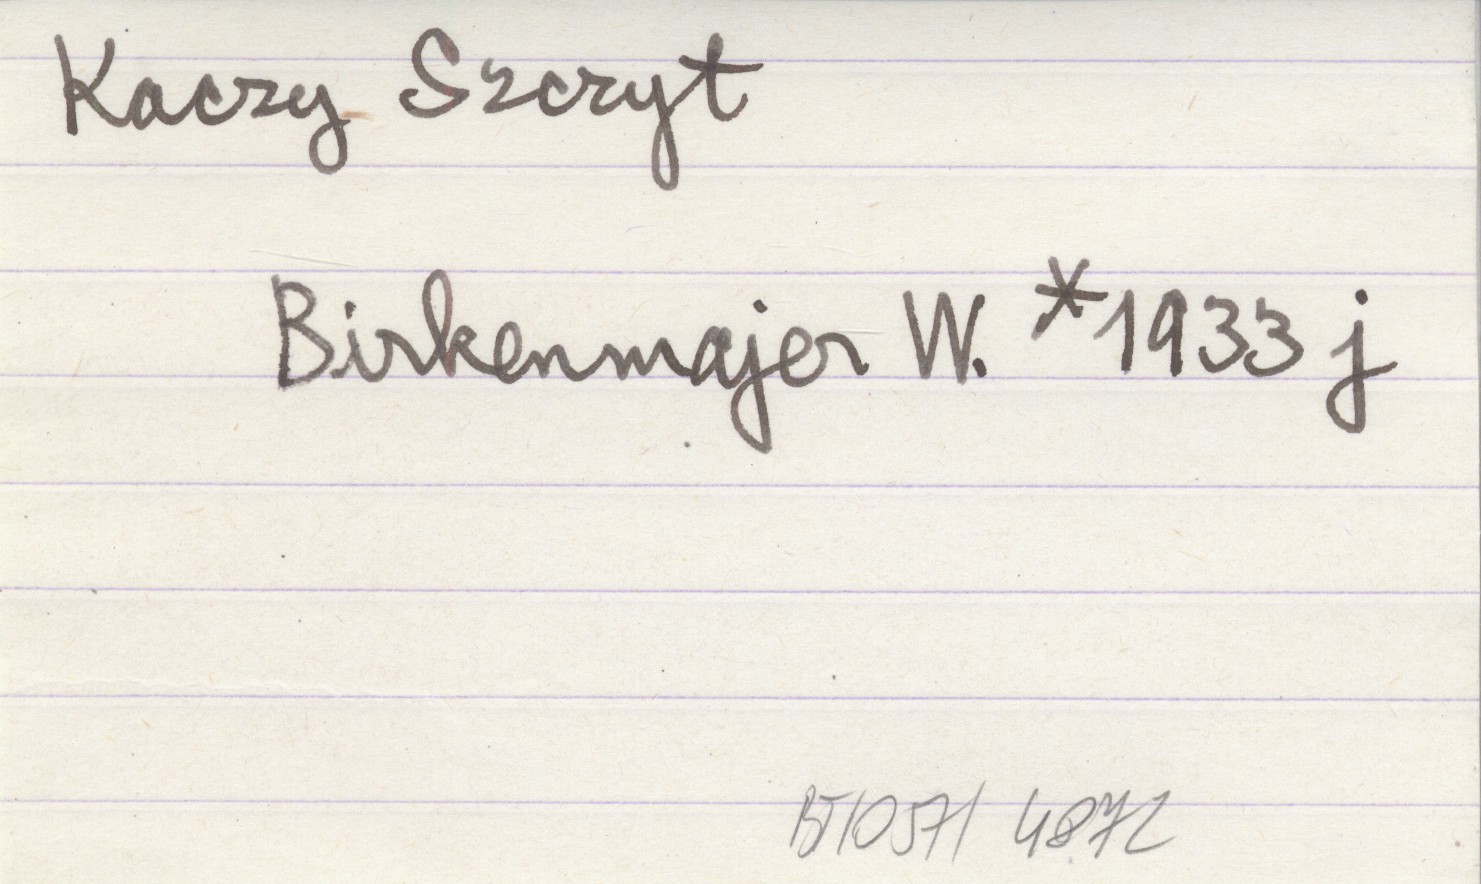 Kaczy Szczyt
Birkenmajer W. *1933 j
BT/057/ 4872